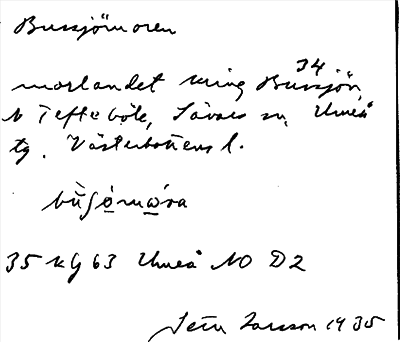 Bussjömoren
34
morlandet kring Bussjön,
N Tefteböle, Sävars sn, Umeå
tg. Västerbottens l.
35 kg 63 Umeå NO D2
Seth Larsson 1935